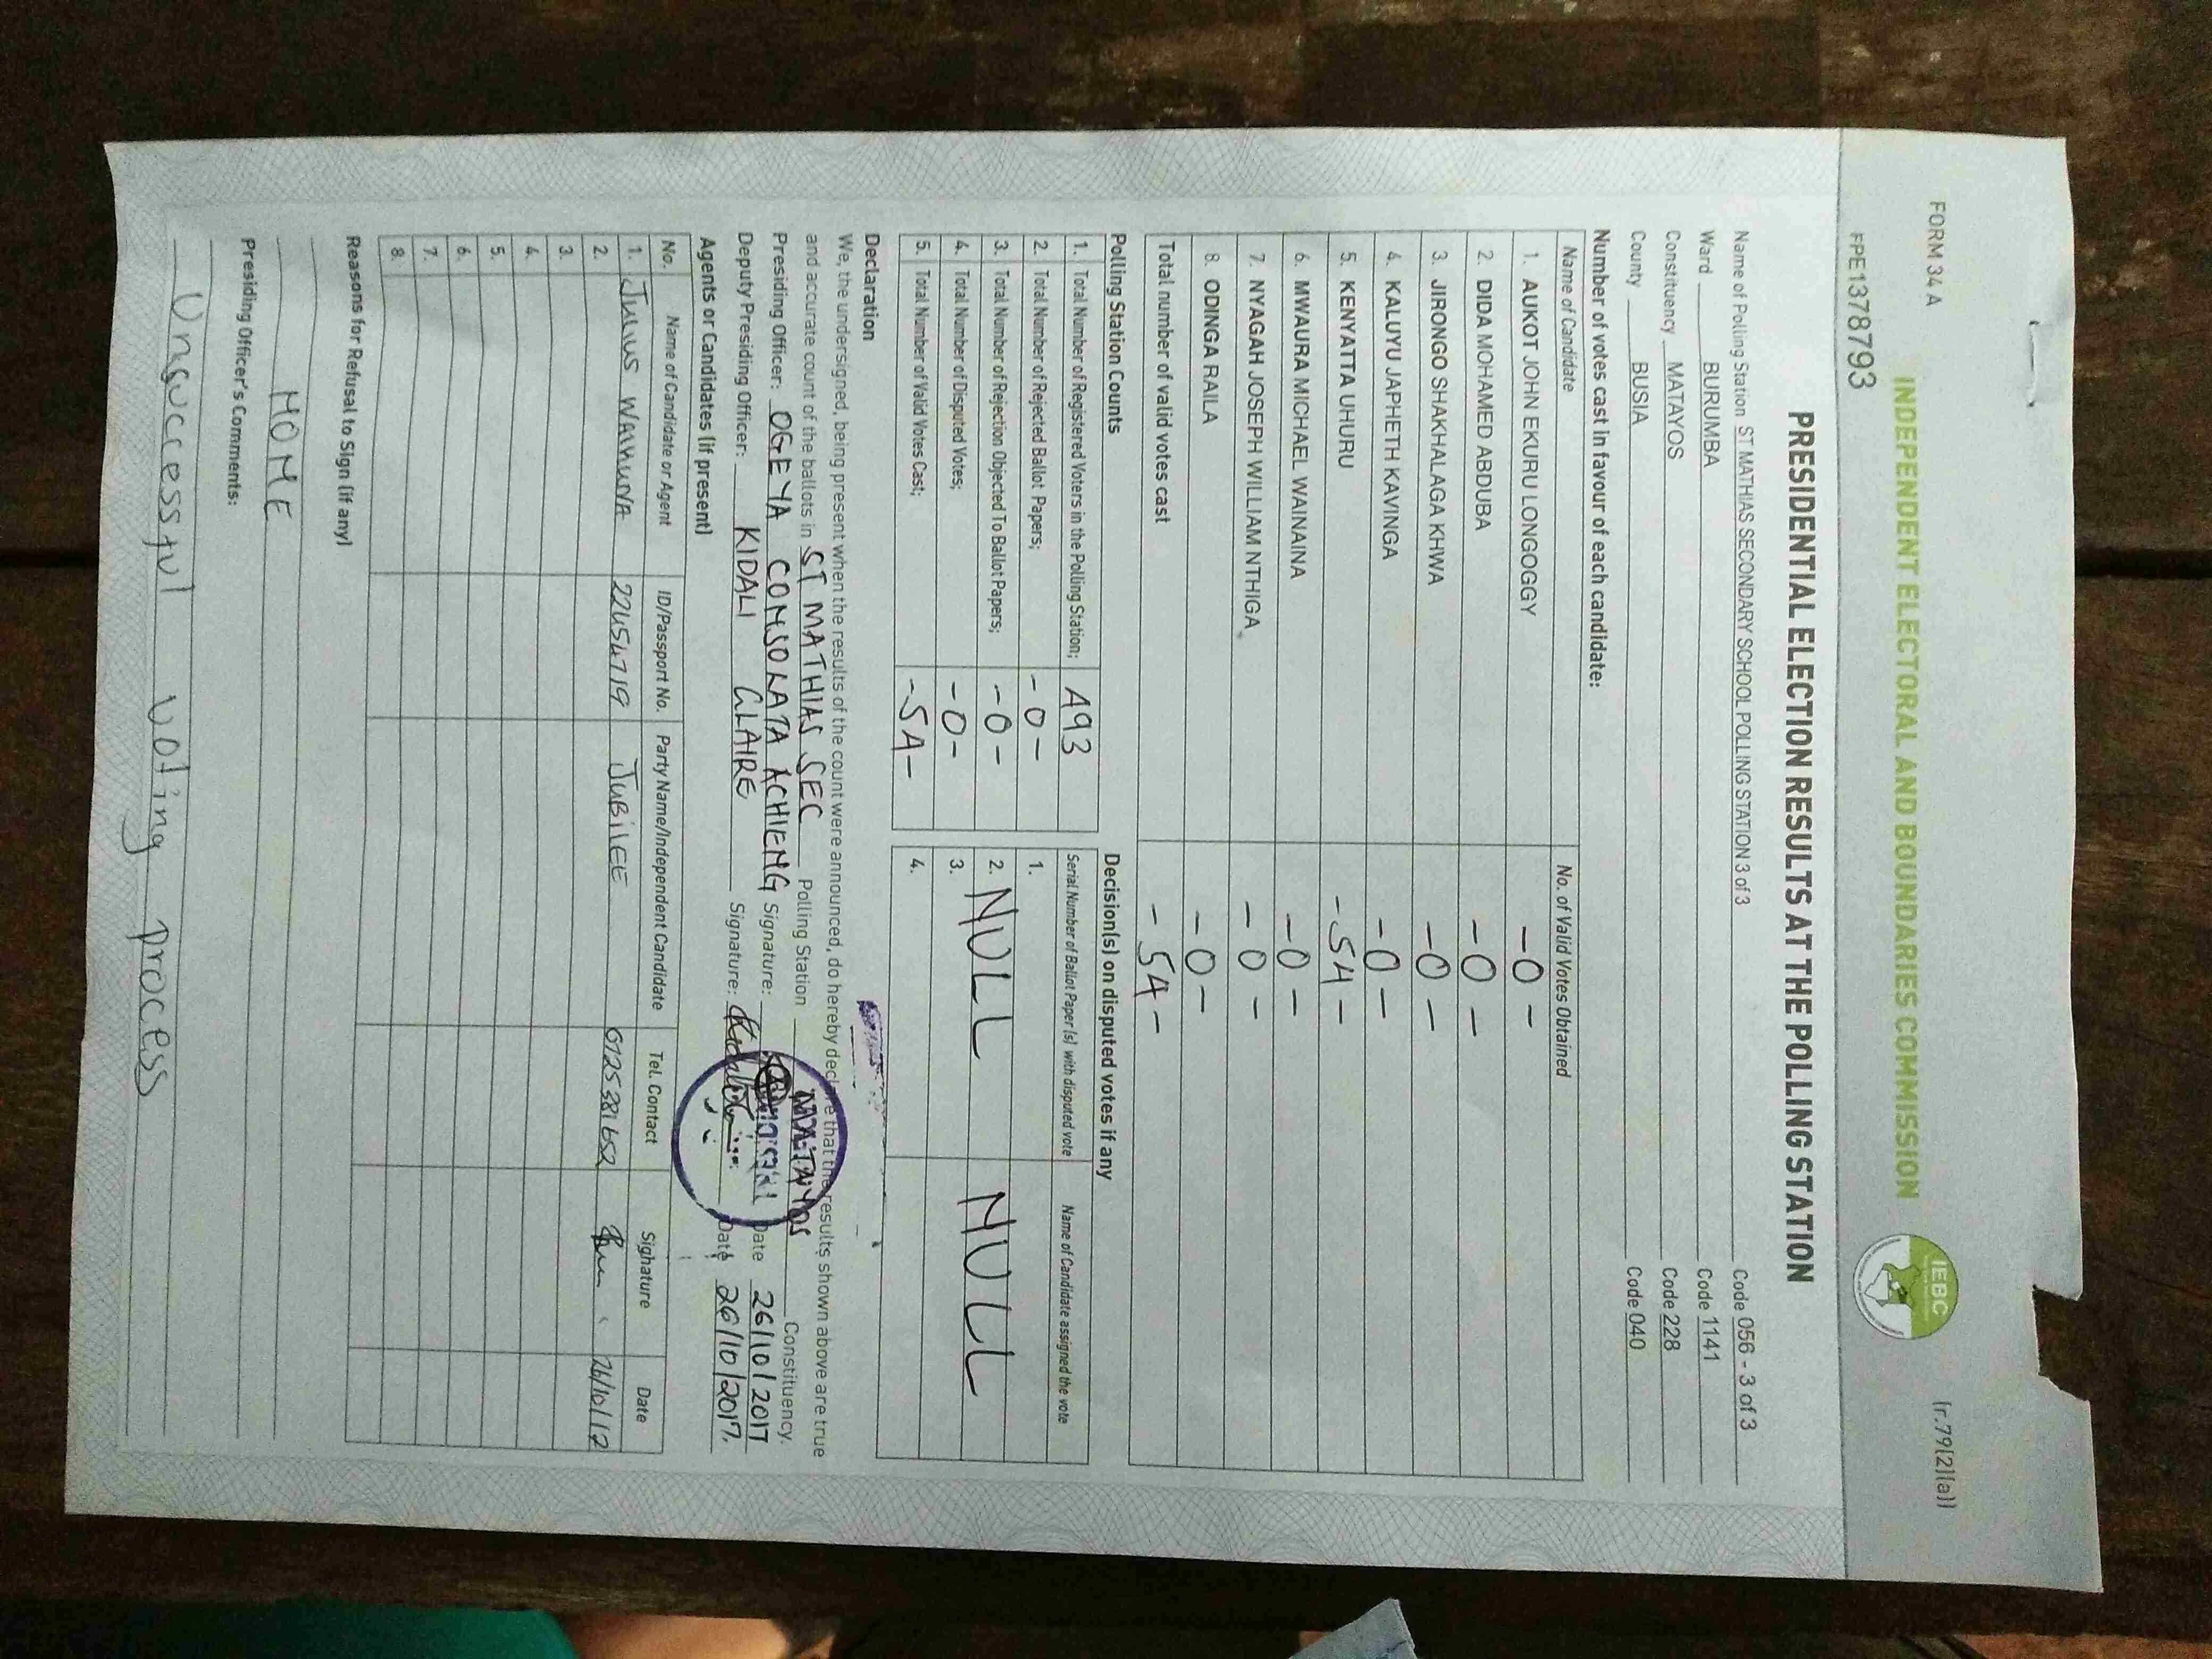 FORM 34 A
(r.79(2)(a))
INDEPENDENT ELECTORAL AND BOUNDARIES COMMISSION
IEBC
PPE1378793
PRESIDENTIAL ELECTION RESULTS AT THE POLLING STATION
Name of Polling Station ST MATHIAS SECONDARY SCHOOL POLLING STATION 3 of 3 Code 056 - 3 of 3
Ward BURUMBA Code 1141
Constituency MATAYOS Code 228
County BUSIA Code 040
Number of votes cast in favour of each candidate:
Name of Candidate No. of Valid Votes Obtained
1. AUKOT JOHN EKURU LONGOGGY -0-
2. DIDA MOHAMED ABDUBA -0-
3. JIRONGO SHAKHALAGA KHWA -0-
4. KALUYU JAPHETH KAVINGA -0-
5. KENYATTA UHURU -54-
6. MWAURA MICHAEL WAINAINA -0-
7. NYAGAH JOSEPH WILLIAM NTHIGA -0-
8. ODINGA RAILA -0-
Total number of valid votes cast -54-
Polling Station Counts Decision(s) on disputed votes if any
1. Total Number of Registered Voters in the Polling Station; 493 Serial Number of Ballot Paper (s) with disputed vote Name of Candidate assigned the vote
2. Total Number of Rejected Ballot Papers; -0- 1.
3. Total Number of Rejection Objected To Ballot Papers; -0- 2. NULL NULL
4. Total Number of Disputed Votes; -0- 3.
5. Total Number of Valid Votes Cast; -54- 4.
Declaration
We, the undersigned, being present when the results of the count were announced, do hereby declare that the results shown above are true
and accurate count of the ballots in ST MATHIAS SEC Polling Station MATAYOS Constituency.
Presiding Officer: OGEYA CONSOLATA ACHIENG Signature: Date 26/10/2017
Deputy Presiding Officer: KIDALI CLAIRE Signature: Date 26/10/2017.
Agents or Candidates (if present)
No. Name of Candidate or Agent ID/Passport No. Party Name/Independent Candidate Tel. Contact Signature Date
1. JULIUS 22454719 JUBILEE 0725381652 26/10/17
2.
3.
4.
5.
6.
7.
8.
Reasons for Refusal to Sign (if any)
NONE
Presiding Officer's Comments:
Unsuccessful voting process